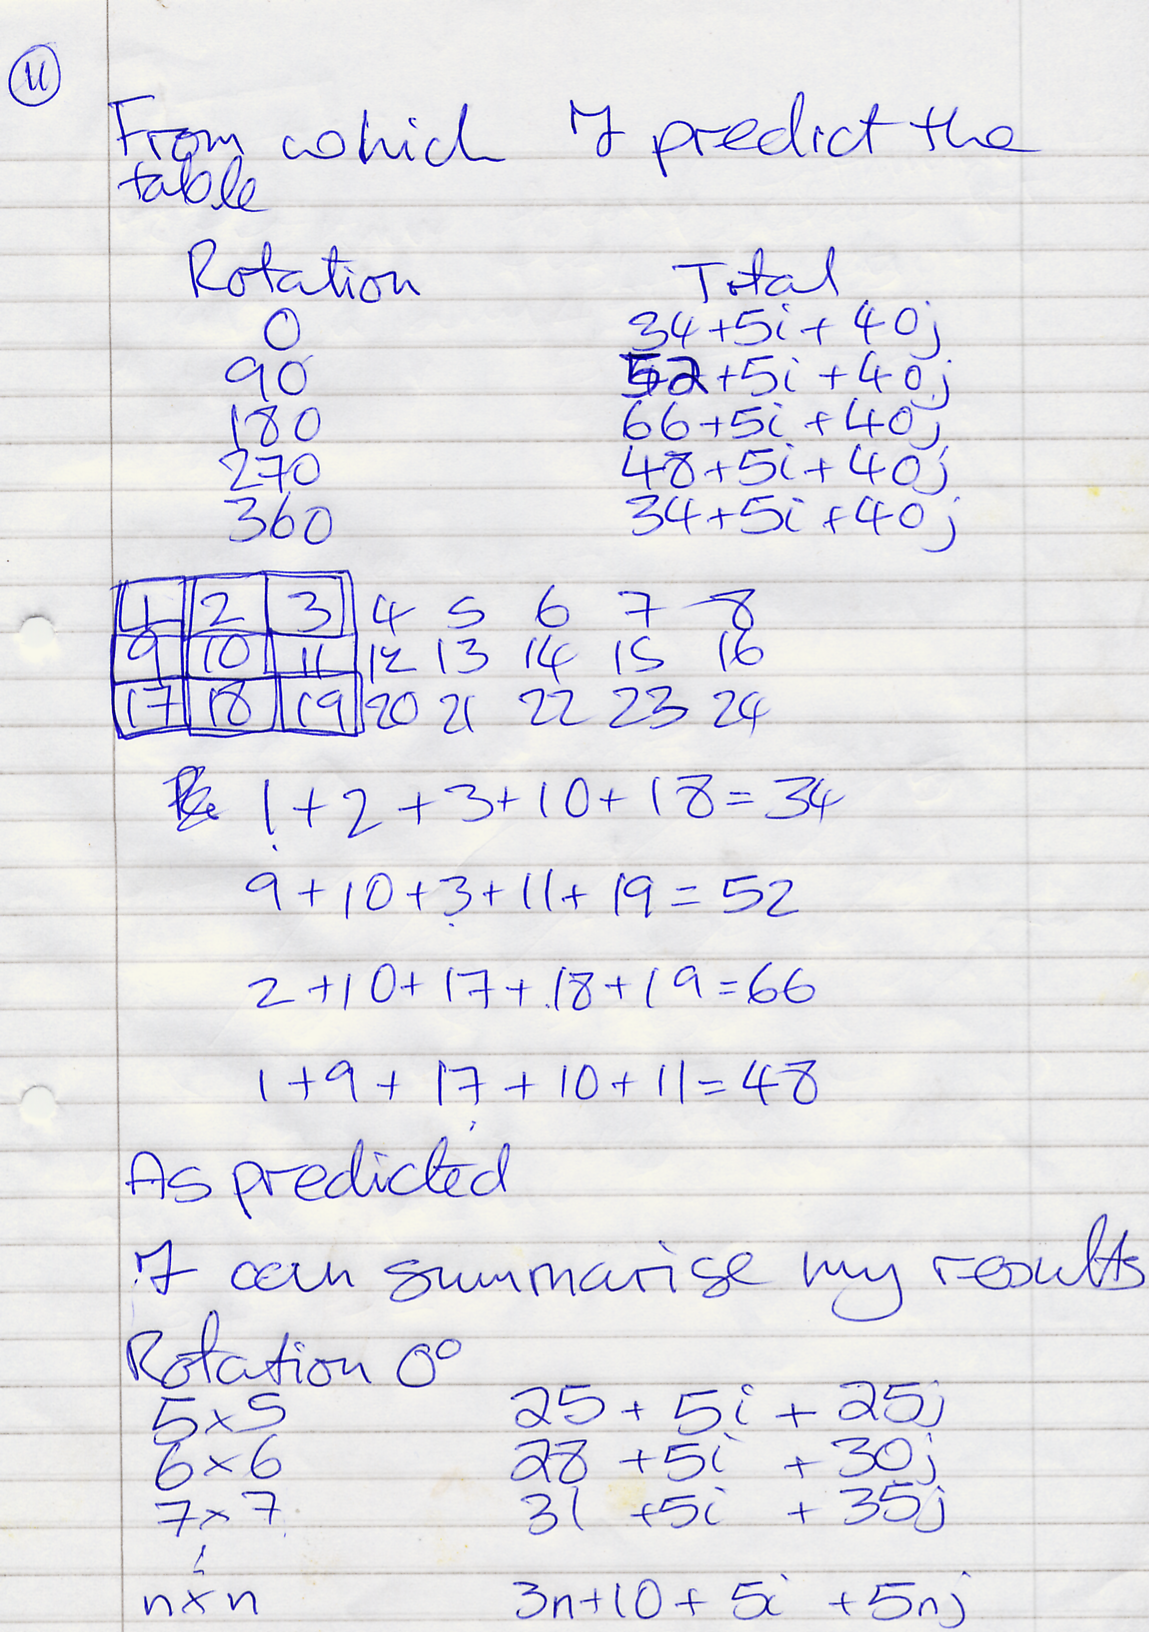 11
From which I predict the
table
Rotation Total
0 34+5i+40j
90 52+5i+40j
180 66+5i+40j
270 48+5i+40j
360 34+5i+40j
1 2 3 4 5 6 7 8
9 10 11 12 13 14 15 16
17 18 19 20 21 22 23 24
1+2+3+10+18=34
9+10+3+11+19=52
2+10+17+18+19=66
1+9+17+10+11=48
As predicted
I can summarise my results
Rotation 0°
5×5 25+5i+25j
6×6 28+5i+30j
7×7 31+5i+35j
n×n 3n+10+5i+5nj